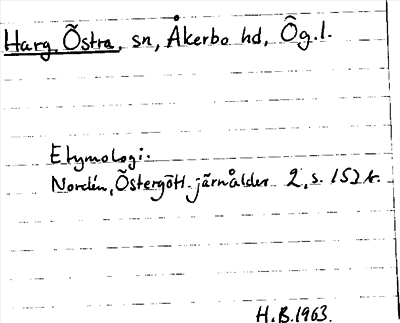 Harg, Östra, sn, Åkerbo hd, Ög.l.
Etymologi.
Nordén, Östergötl. järnålder 2, s. 152 f.
H.B. 1963.